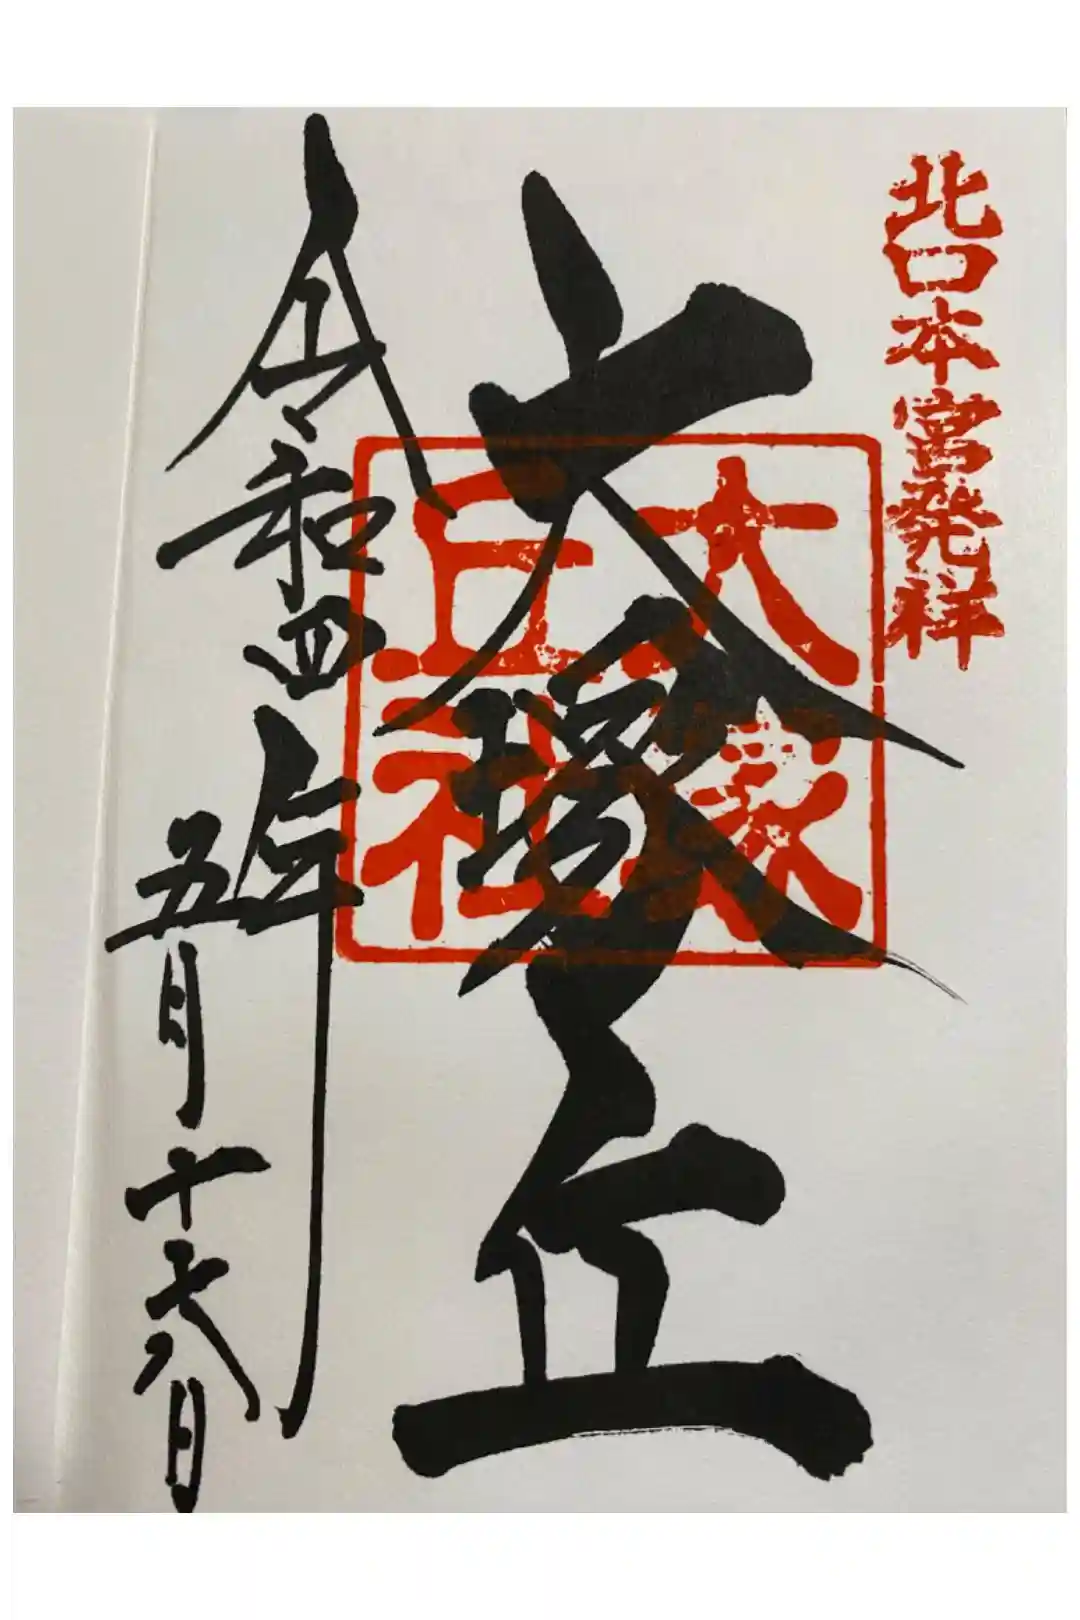 北口本宮発祥
大塚丘
大塚
丘社
令和四年
五月十六日